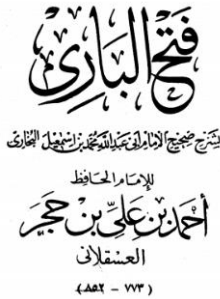 فتح الباري
بشرح صحيح الإمام أبي عبد الله محمد بن إسمعيل البخاري
للإمام الحافظ
أحمد بن علي بن حجر
العسقلاني
(٧٧٣ - ٨٥٢ هـ)